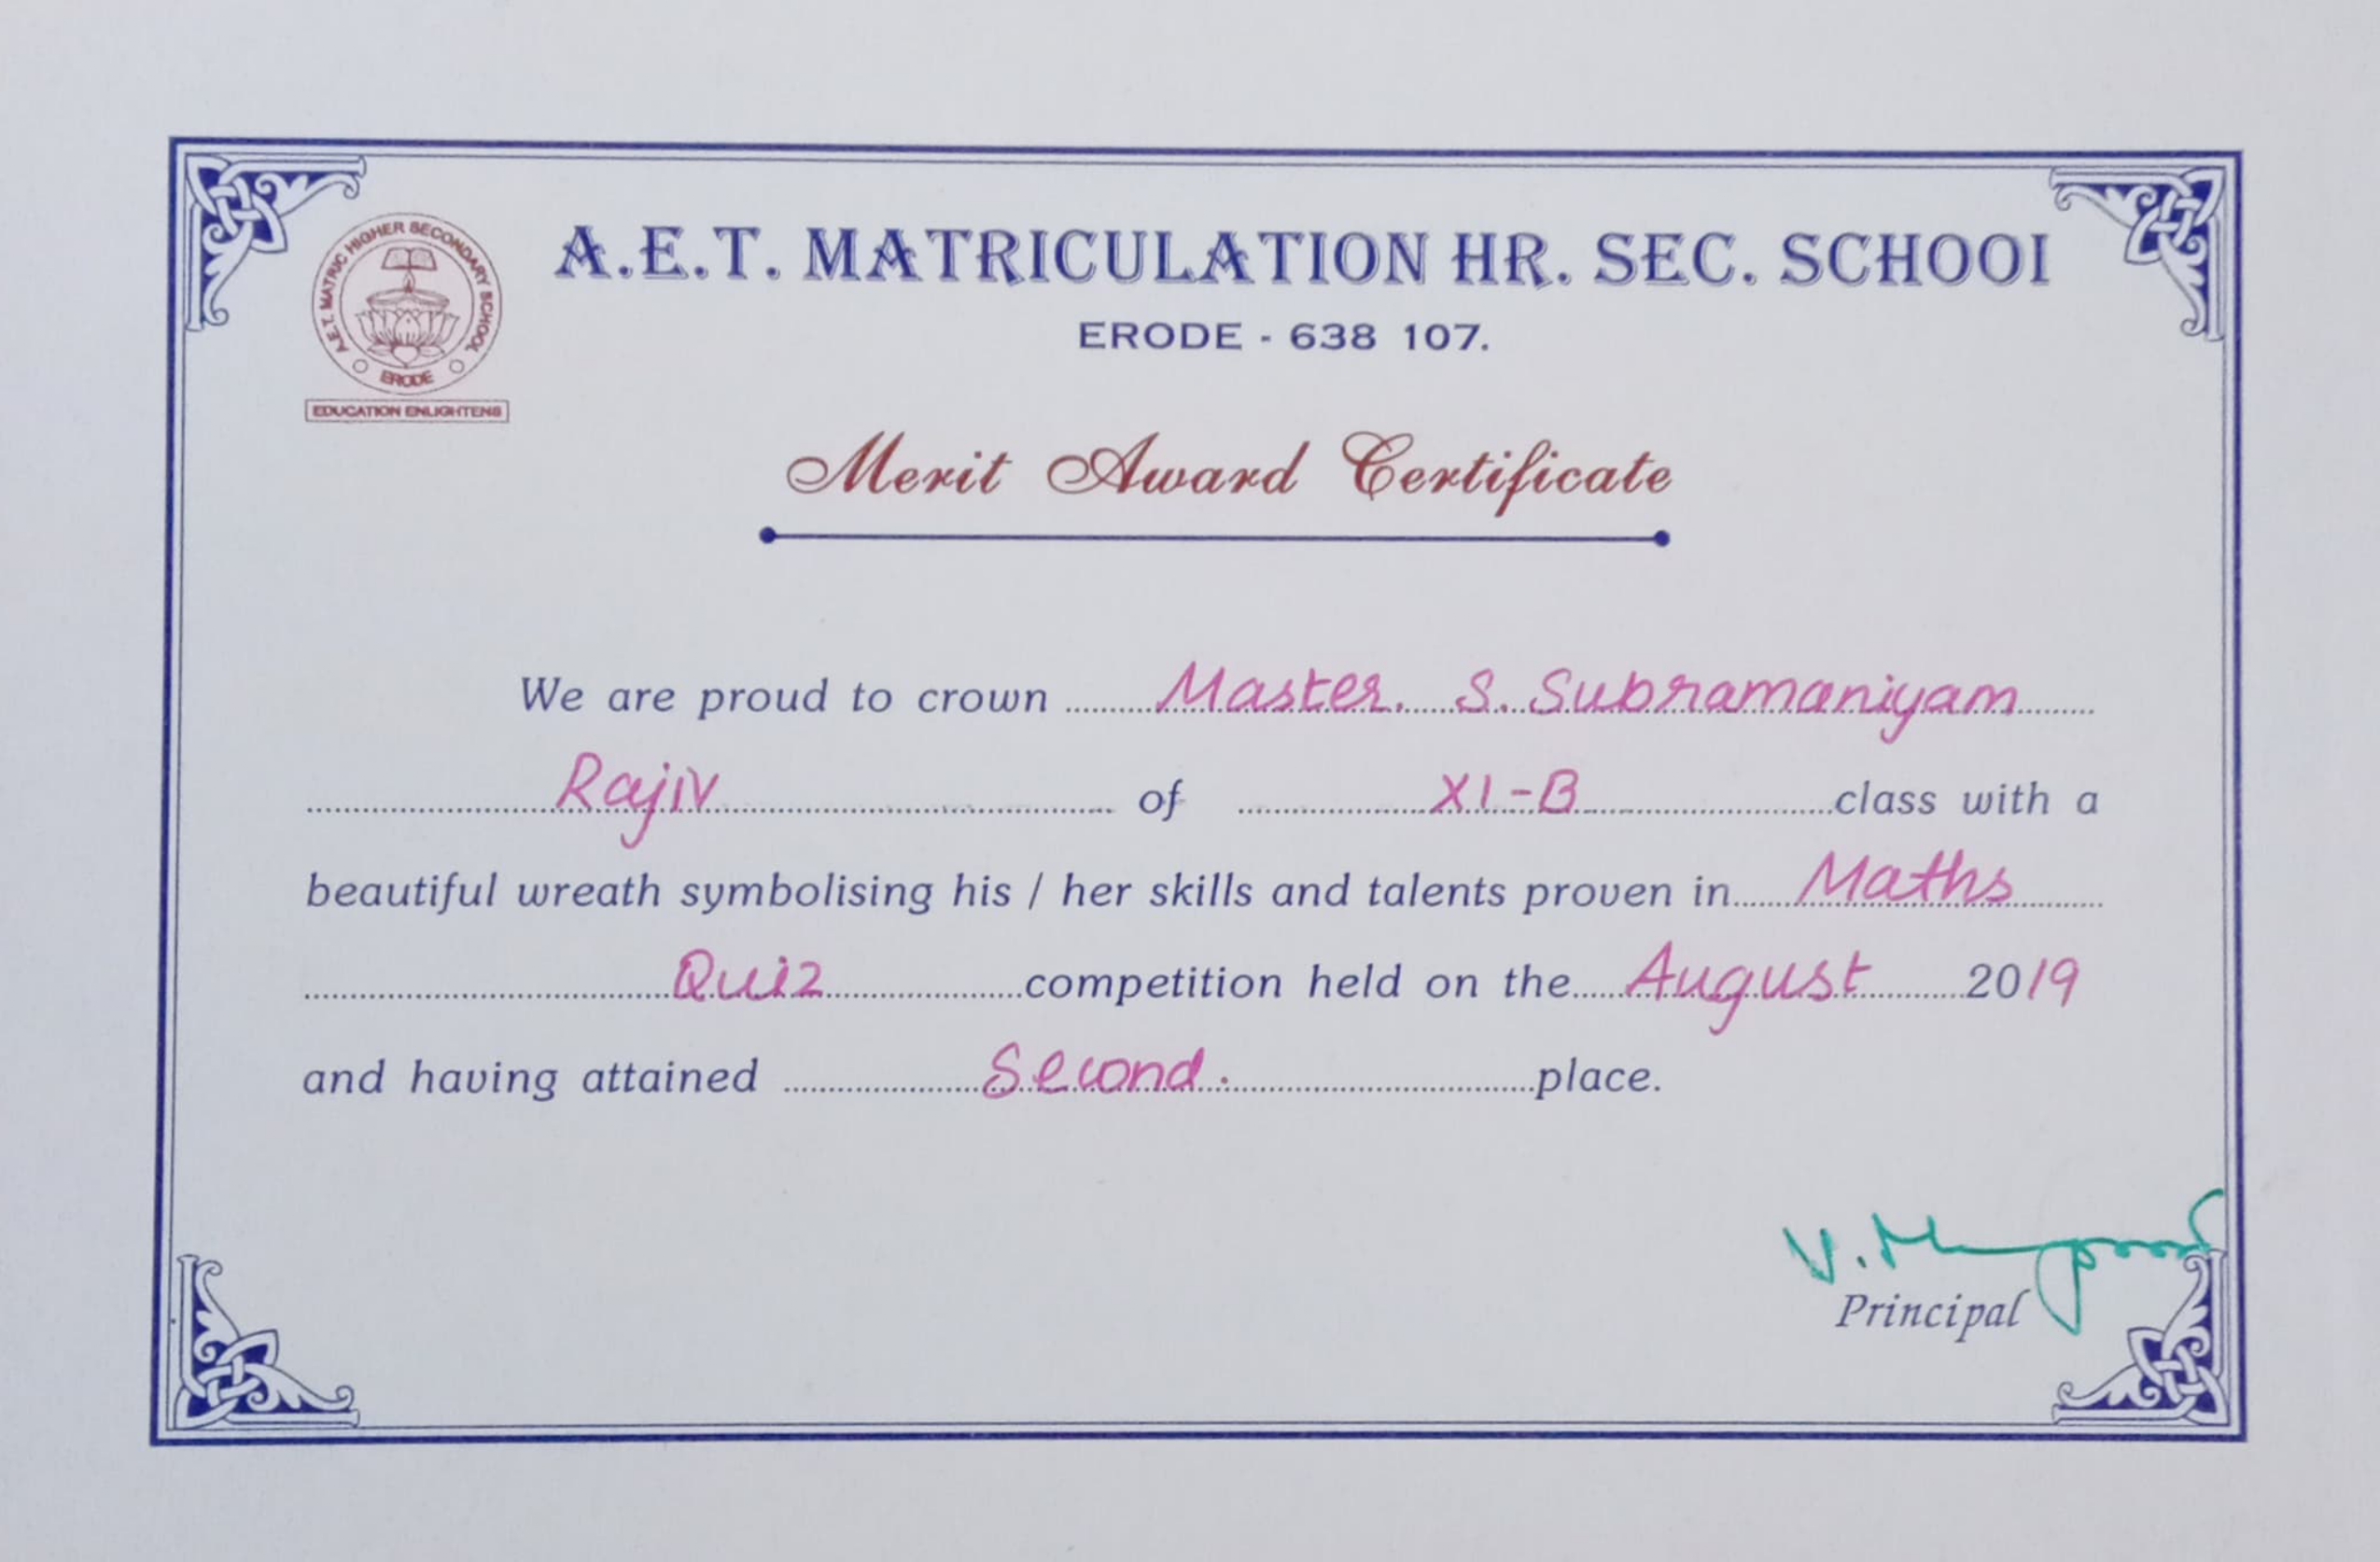 A.E.T. MATRIC HIGHER SECONDARY SCHOOL
ERODE
EDUCATION ENLIGHTENS
A.E.T. MATRICULATION HR. SEC. SCHOOl
ERODE - 638 107.
Merit Award Certificate
We are proud to crown Master. S. Subramaniyam
Rajiv of XI-B class with a
beautiful wreath symbolising his / her skills and talents proven in Maths
Quiz competition held on the August 2019
and having attained Second. place.
Principal